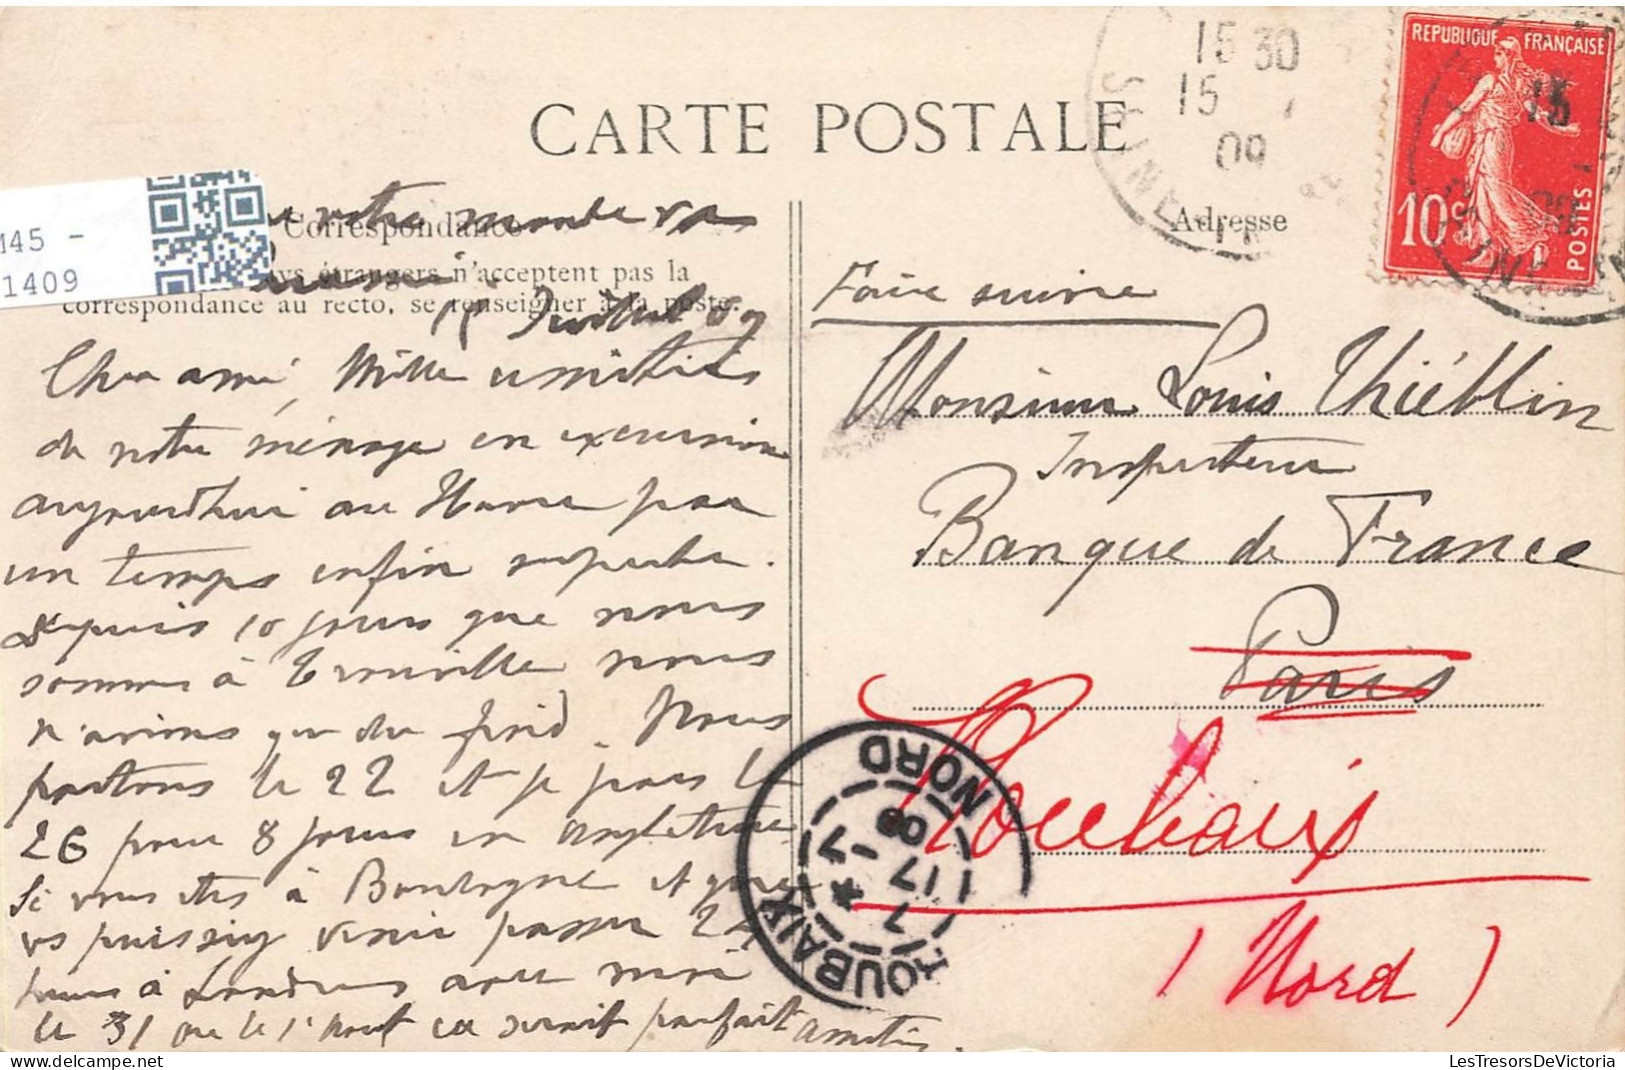 CARTE POSTALE
Correspondance
étrangers n'acceptent pas la
correspondance au recto, se renseigner à la poste.
M45 -
1409
votre
15 Juillet 09
Cher ami, Mille amitiés
de notre ménage en excursion
aujourd'hui au Havre par
un temps enfin superbe.
Depuis 10 jours que nous
sommes à Trouville nous
n'avions que du froid. Nous
partons le 22 et je pars le
26 pour 8 jours en Angleterre
Si vous êtes à Boulogne et que
vs puissiez venir passer 24
heures à Londres avec moi
le 31 ou le 1r Aout ce serait parfait amitiés.
Adresse
Faire suivre
Monsieur Louis Thiéblin
Inspecteur
Banque de France
Paris
Roubaix
(Nord)
15 30
15
09
REPUBLIQUE FRANÇAISE
10c
POSTES
ROUBAIX
NORD
7 *
17 - 7
09
LesTresorsDeVictoria.com